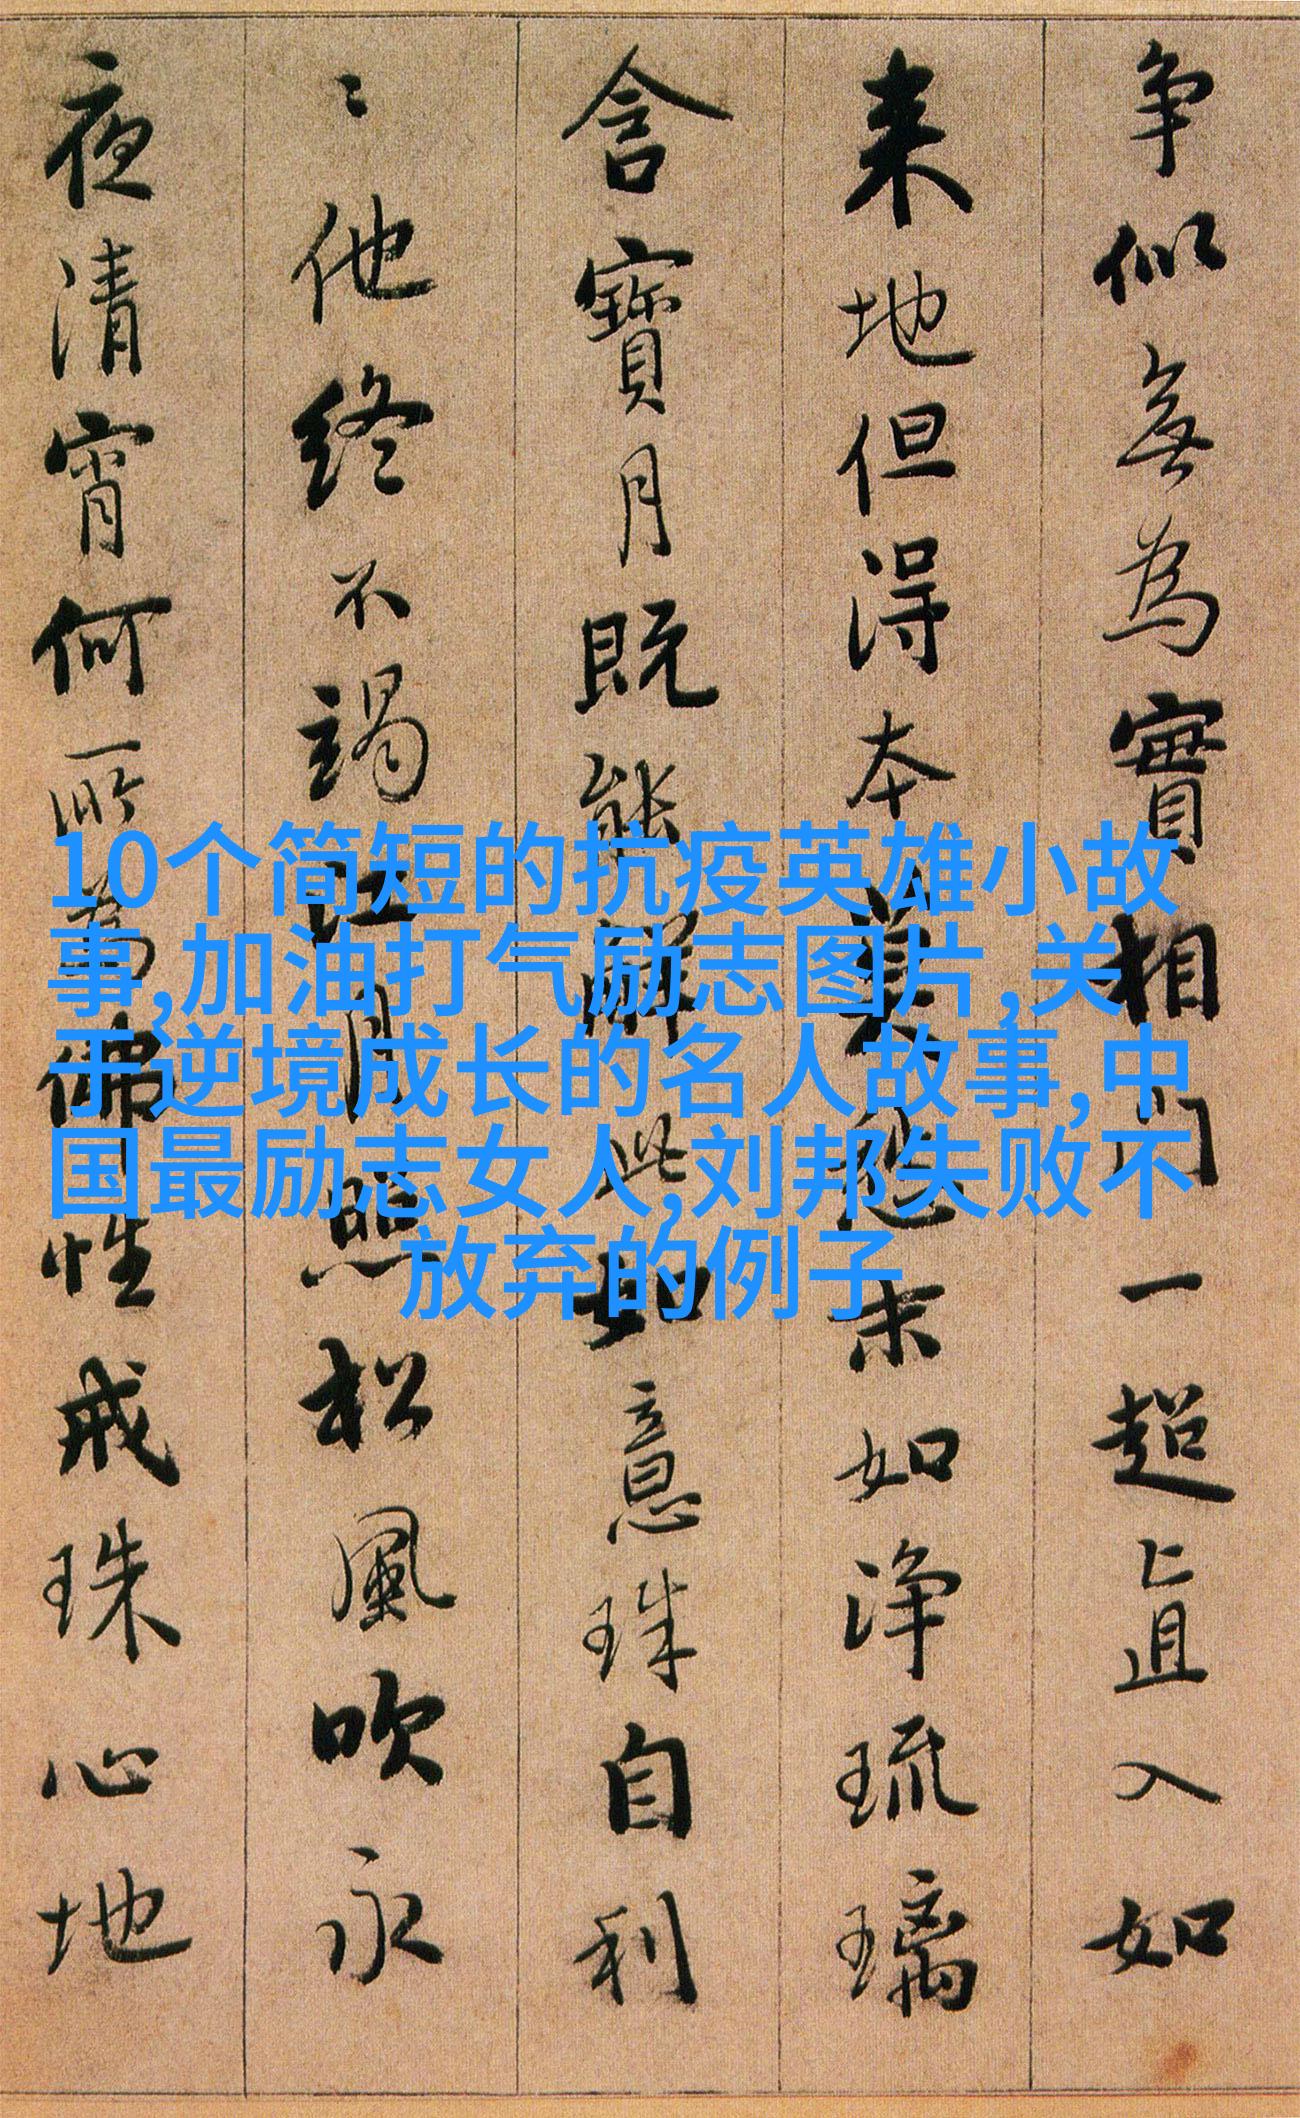 争似無為實相門一超直入如
来地但得本莫愁末如淨琉璃
含寶月既能解此如意珠自利
〻他終不竭江月照松風吹永
夜清宵何所為佛性戒珠心地
10个简短的抗疫英雄小故
事,加油打气励志图片,关
于逆境成长的名人故事,中
国最励志女人,刘邦失败不
放弃的例子